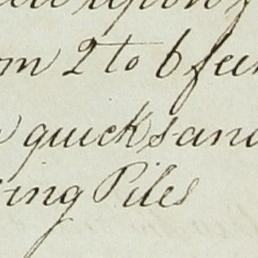 upon f
om 2 to 6 fee
quicksand
ing Piles